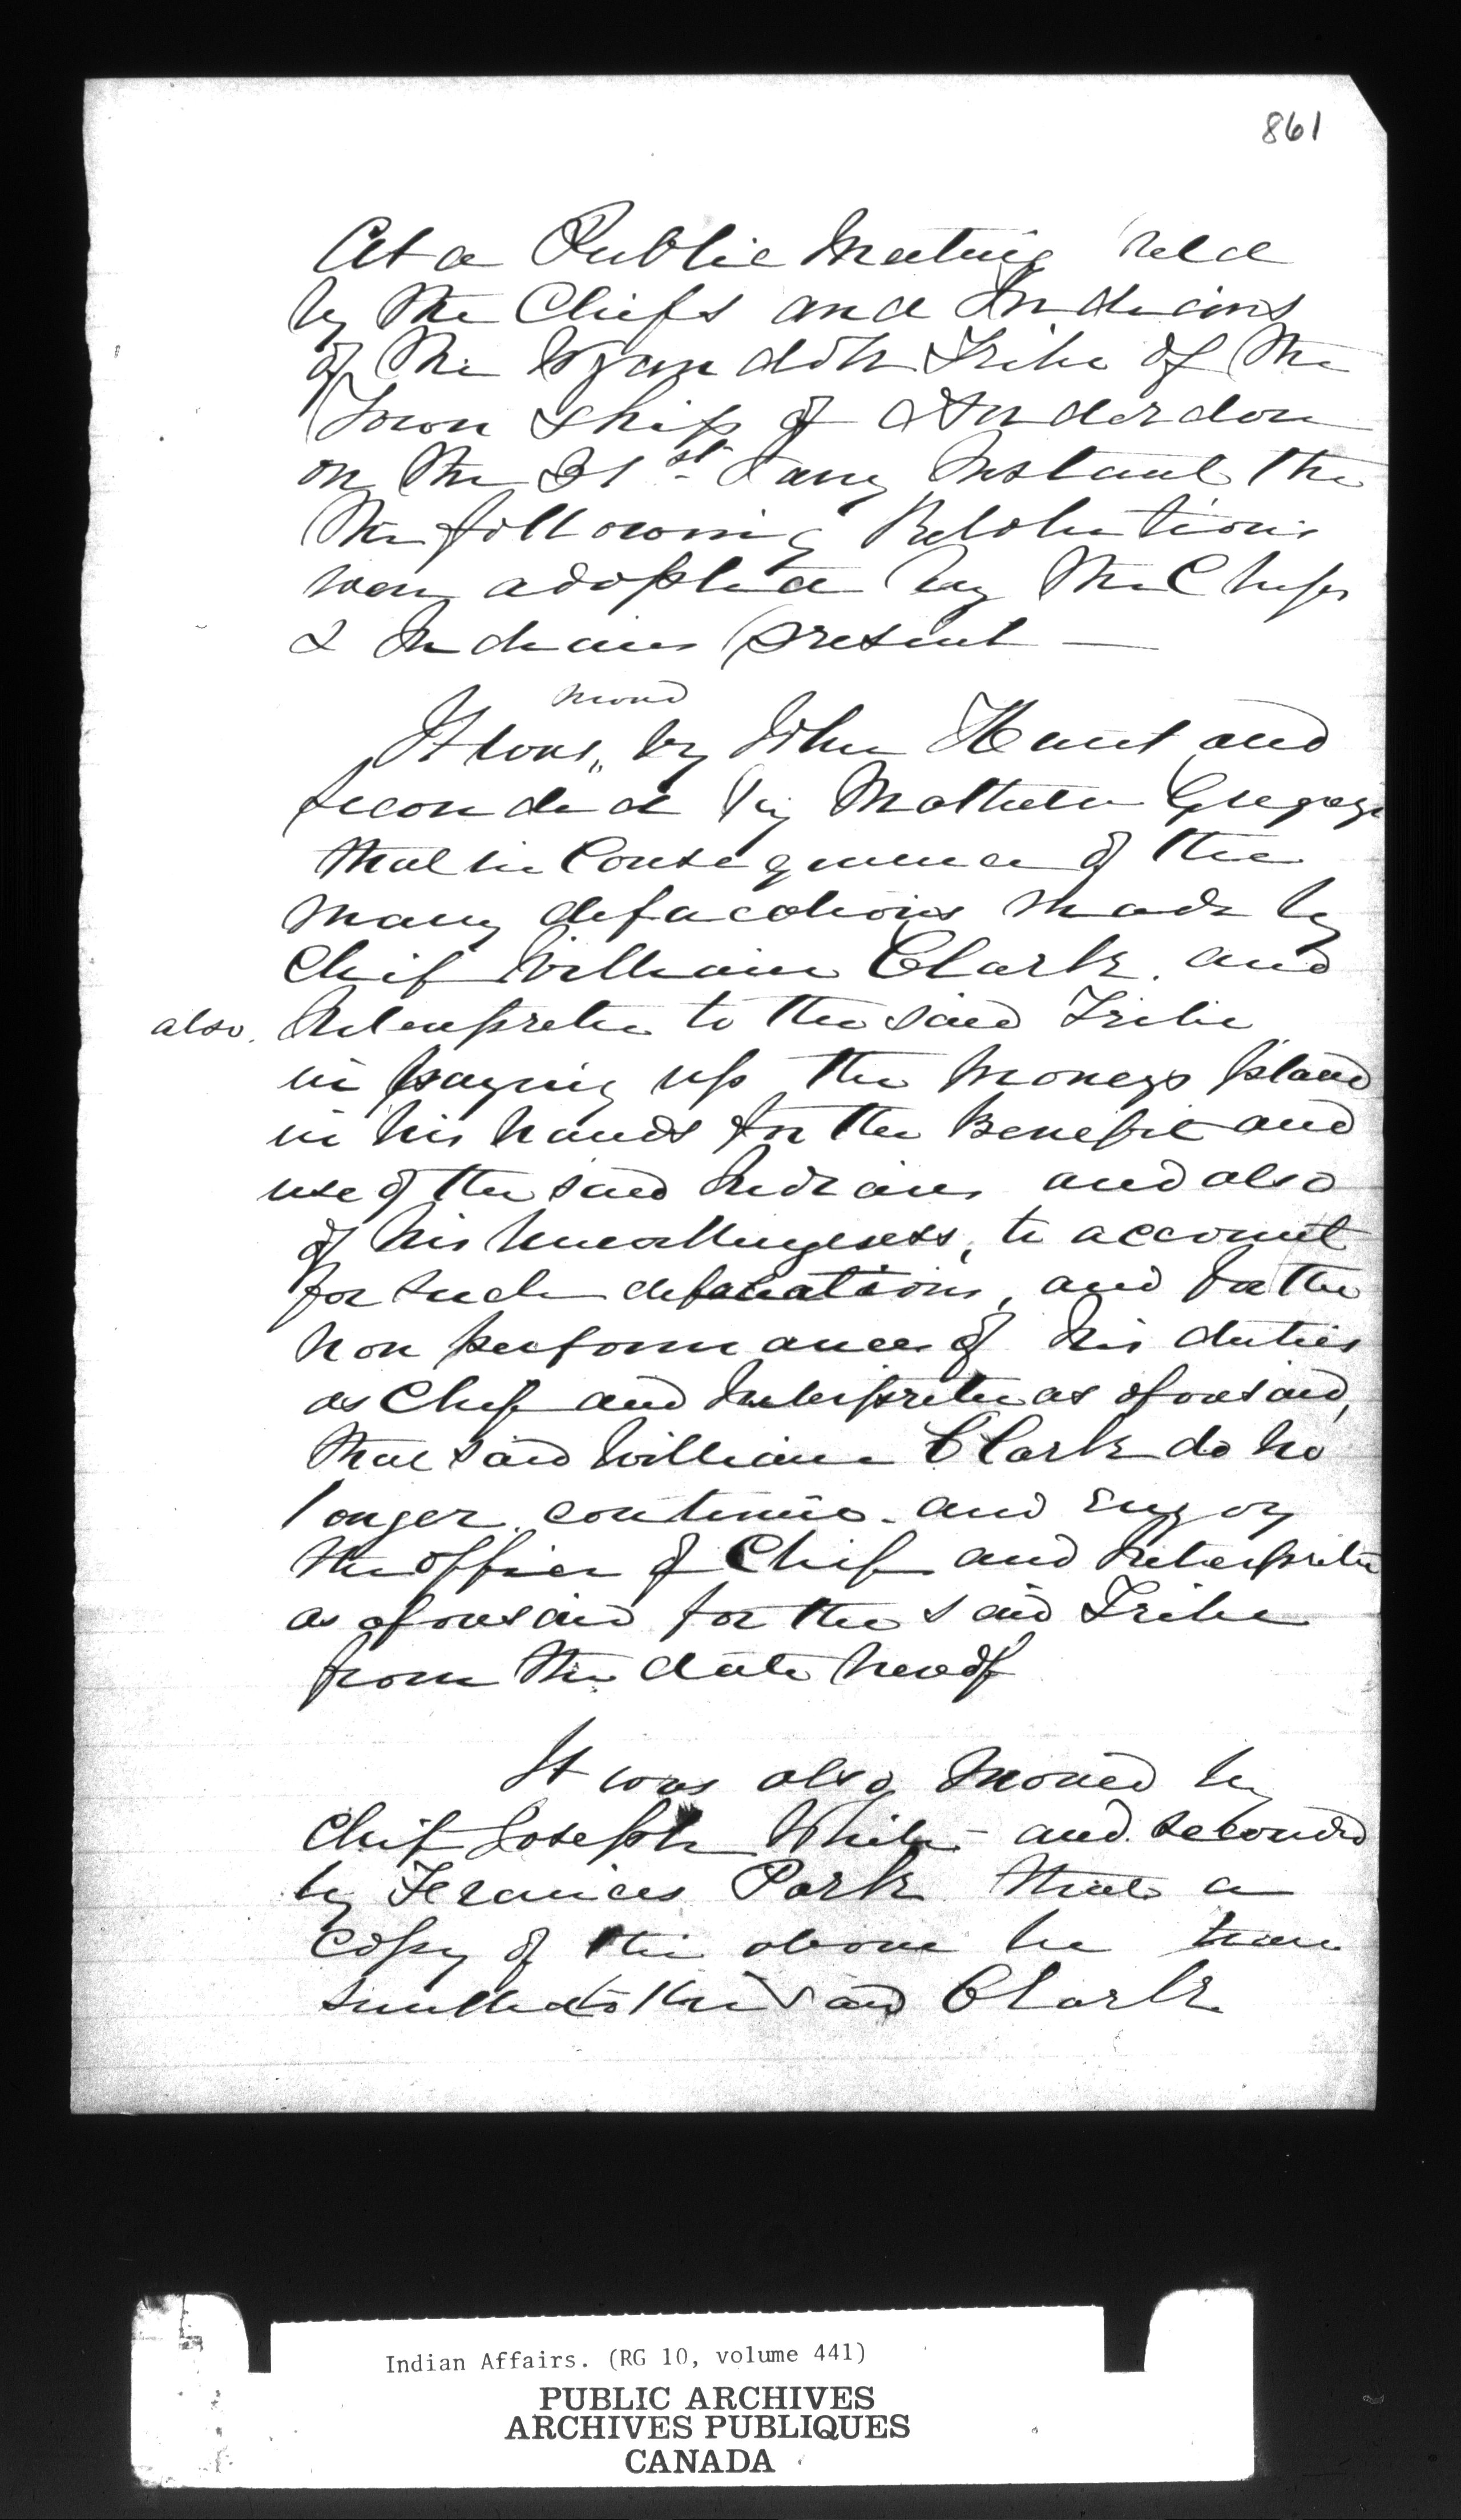 861
At a Public Meeting held
by the Chiefs and Indians
of the Wyandott Tribe of the
Town Ship of Anderdon
on the 31st Jany Instant the
the following Resolutions
were adopted by the Chiefs
& Indians Present —
moved
It was by John Hunt and
seconded by Mathew Gregory
that in Consequence of the
many defacations made by
Chief William Clark and
also Interpreter to the said Tribe
in paying up the moneys placed
in his hands for the Benefit and
use of the said Indians and also
of his unwillingness, to account
for such defacations, and for the
non performance of his duties
as Chief and Interpreter as aforesaid,
that said William Clark do no
longer continue and Enjoy
the office of Chief and Interpreter
as aforesaid for the said Tribe
from the date hereof
It was also moved by
Chief Joseph White and seconded
by Francis Park that a
copy of the above be tran
smitted to the said Clark
Indian Affairs. (RG 10, volume 441)
PUBLIC ARCHIVES
ARCHIVES PUBLIQUES
CANADA